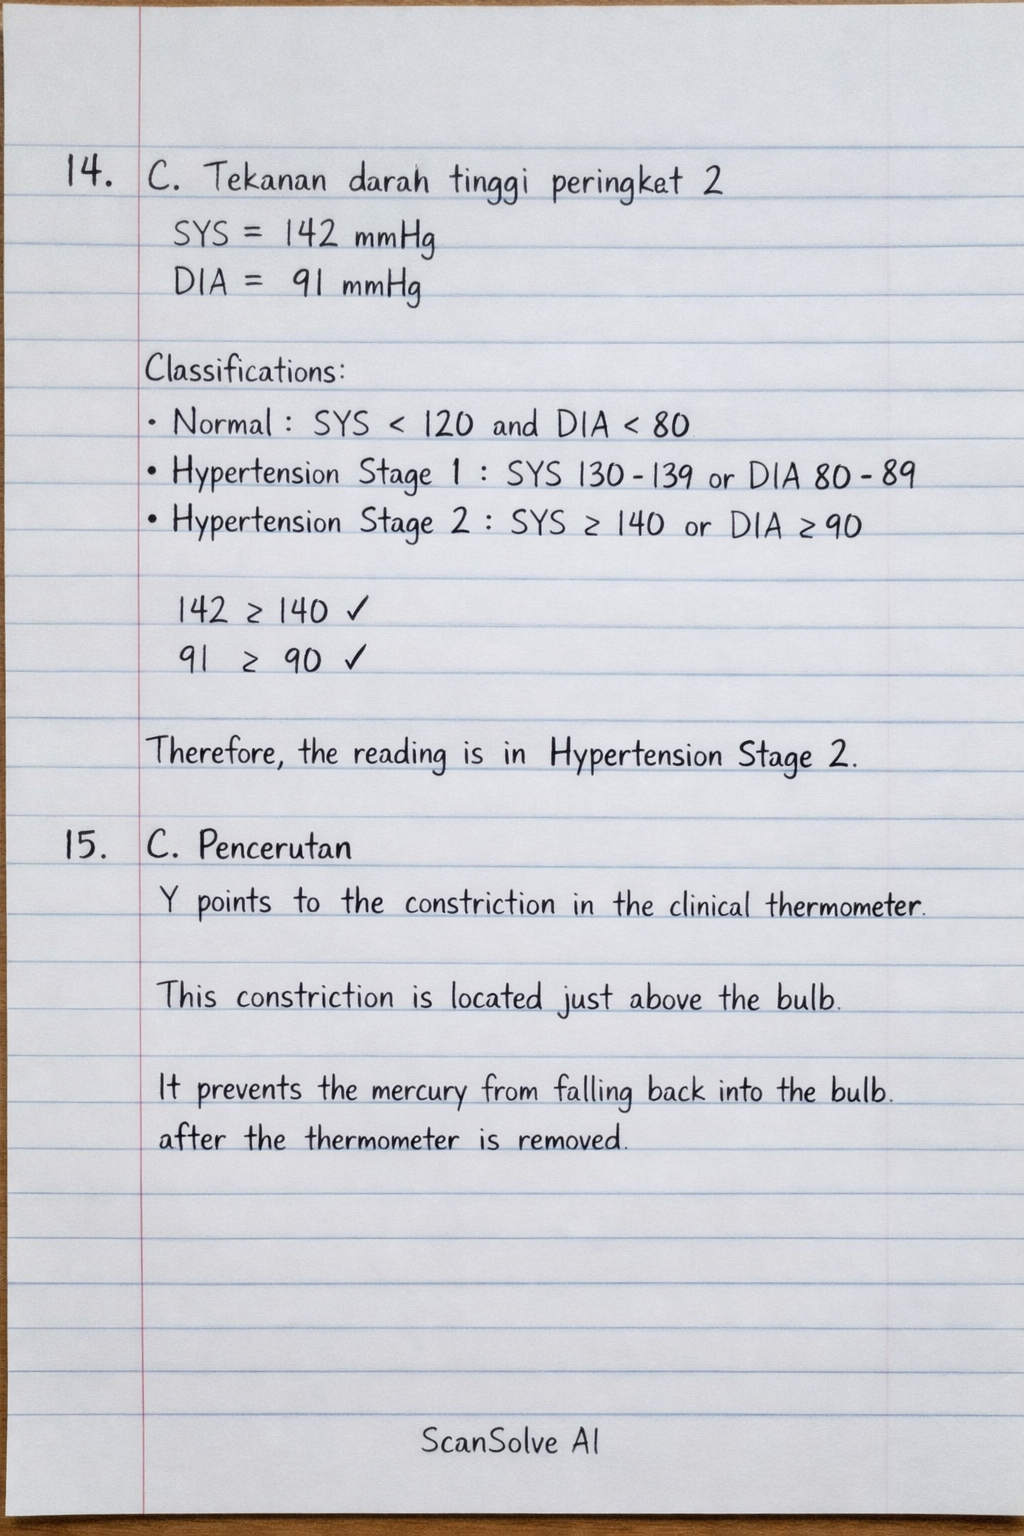 14. C. Tekanan darah tinggi peringket 2
SYS = 142 mmHg
DIA = 91 mmHg
Classifications:
• Normal : SYS < 120 and DIA < 80
• Hypertension Stage 1 : SYS 130 - 139 or DIA 80 - 89
• Hypertension Stage 2 : SYS ≥ 140 or DIA ≥ 90
142 ≥ 140 ✓
91 ≥ 90 ✓
Therefore, the reading is in Hypertension Stage 2.
15. C. Pencerutan
Y points to the constriction in the clinical thermometer.
This constriction is located just above the bulb.
It prevents the mercury from falling back into the bulb.
after the thermometer is removed.
ScanSolve AI